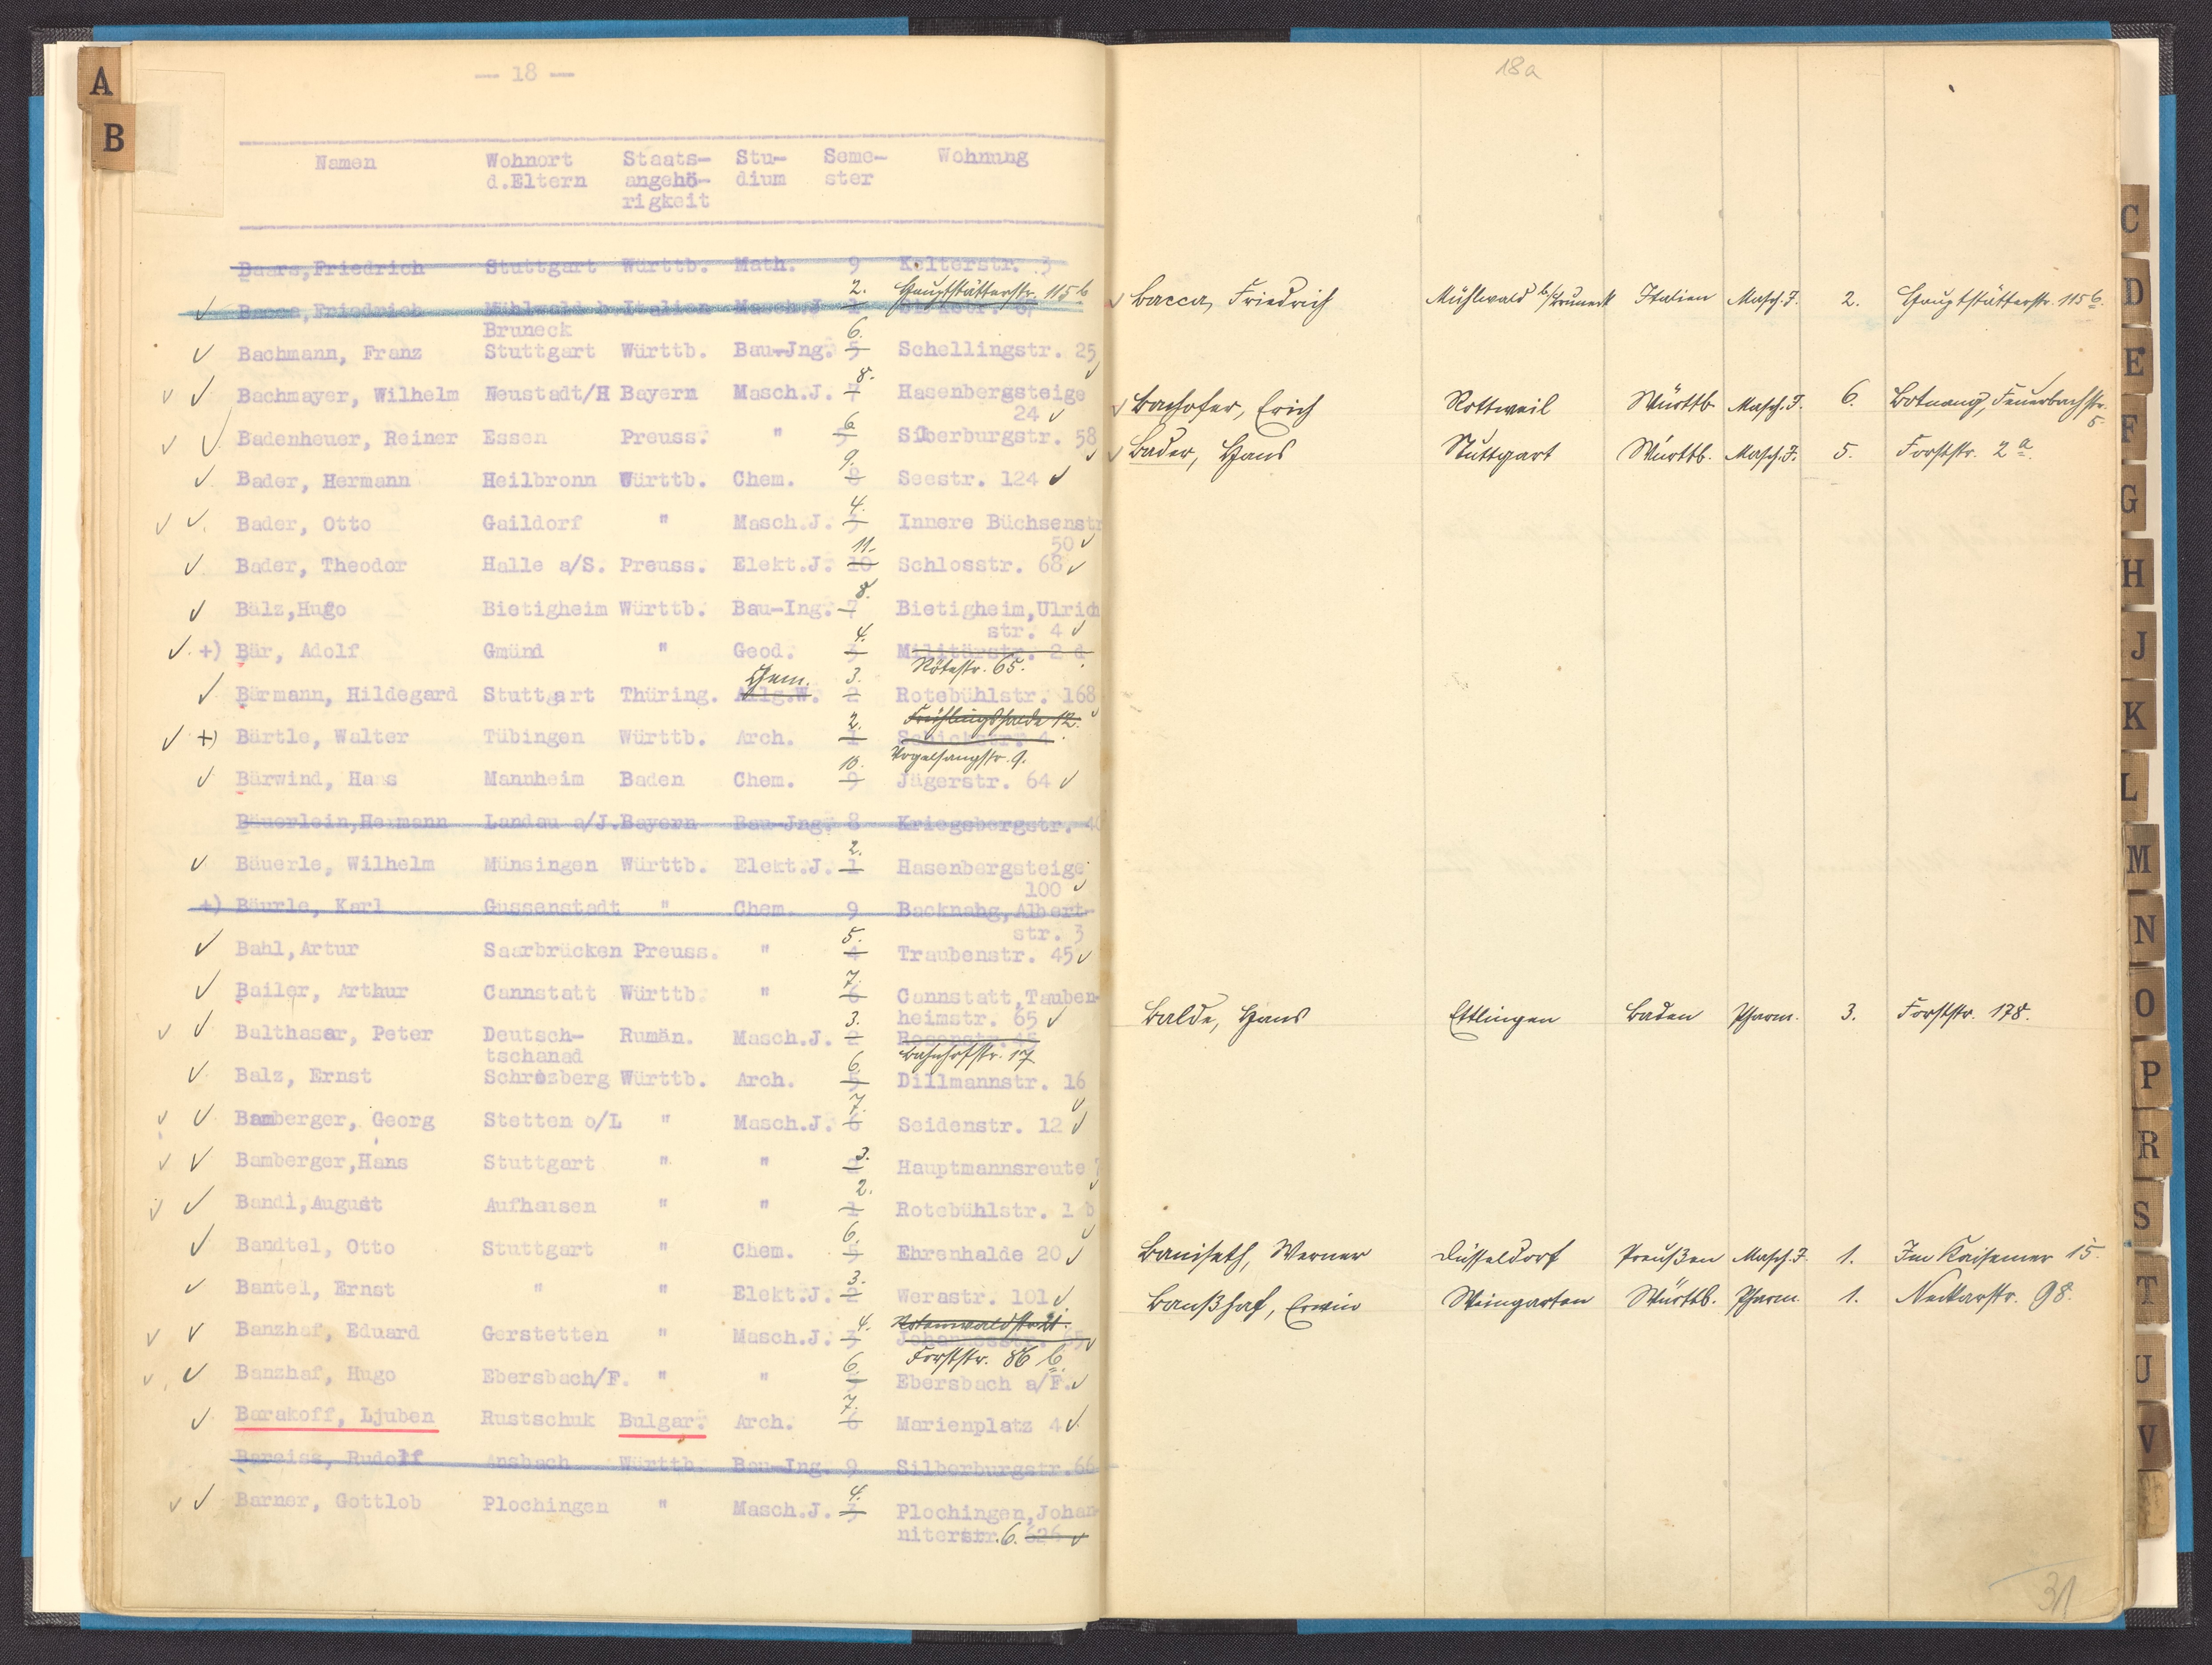 A
B
— 18 —
Namen Wohnort Staats- Stu- Seme- Wohnung
d.Eltern angehö- dium ster
rigkeit
Baars,Friedrich Stuttgart Württb. Math. 9 Kelterstr. 3
2. Hauptstätterstr. 115 b
Bacca,Friedrich Mühlwald b. Italien Masch.J 1
Bruneck 6.
Bachmann, Franz Stuttgart Württb. Bau-Jng. 5 Schellingstr. 25
8.
Bachmayer, Wilhelm Neustadt/H Bayern Masch.J. 7 Hasenbergsteige
24
6
Badenheuer, Reiner Essen Preuss. " 5 Silberburgstr. 58
9.
Bader, Hermann Heilbronn Württb. Chem. 8 Seestr. 124
4.
Bader, Otto Gaildorf " Masch.J. 3 Innere Büchsenstr
11. 50
Bader, Theodor Halle a/S. Preuss. Elekt.J. 10 Schlosstr. 68
8.
Bälz,Hugo Bietigheim Württb. Bau-Ing. 7 Bietigheim,Ulrich
4. str. 4
+) Bär, Adolf Gmünd " Geod. 3 Militärstr. 2 d
Chem. 3. Rötestr. 65.
Bärmann, Hildegard Stuttgart Thüring. Allg.W. 2 Rotebühlstr. 168
2. Frühlingshalde 12.
+) Bärtle, Walter Tübingen Württb. Arch. 1 Schickstr. 4
10. Vogelsangstr. 9.
Bärwind, Hans Mannheim Baden Chem. 9 Jägerstr. 64
Bäuerlein,Hermann Landau a/J.Bayern Bau-Jng. 8 Kriegsbergstr. 40
2.
Bäuerle, Wilhelm Münsingen Württb. Elekt.J. 1 Hasenbergsteige
100
+) Bäurle, Karl Gussenstadt " Chem. 9 Backnahg,Albert-
5. str. 3
Bahl,Artur Saarbrücken Preuss. " 4 Traubenstr. 45
7.
Bailer, Arthur Cannstatt Württb. " 6 Cannstatt,Tauben-
3. heimstr. 65
Balthasar, Peter Deutsch- Rumän. Masch.J. 2 Rosenstr. 45
tschanad 6. Bahnhofstr. 17
Balz, Ernst Schrozberg Württb. Arch. 5 Dillmannstr. 16
7.
Bamberger, Georg Stetten o/L " Masch.J. 6 Seidenstr. 12
3.
Bamberger,Hans Stuttgart " " 2 Hauptmannsreute 7
2.
Bandl,August Aufhausen " " 1 Rotebühlstr. 1 b
6.
Bandtel, Otto Stuttgart " Chem. 5 Ehrenhalde 20
3.
Bantel, Ernst " " Elekt.J. 2 Werastr. 101
4. Rotenwaldstr. 21.
Banzhaf, Eduard Gerstetten " Masch.J. 3 Johannesstr. 65
6. Forststr. 86 b.
Banzhaf, Hugo Ebersbach/F. " " 5 Ebersbach a/F.
7.
Barakoff, Ljuben Rustschuk Bulgar. Arch. 6 Marienplatz 4
Bareiss, Rudolf Ansbach Württb. Bau-Jng. 9 Silberburgstr.66
4.
Barner, Gottlob Plochingen " Masch.J. 3 Plochingen,Johan-
niterstr. 6. 626
18a
Bacca, Friedrich Mühlwald b/Bruneck Italien Masch.J. 2. Hauptstätterstr. 115 b.
Bachofer, Erich Rottweil Württb. Masch.J. 6. Botnang, Feuerbachstr.
5.
Bader, Hans Stuttgart Württb. Masch.J. 5. Forststr. 2 a.
Balde, Hans Ettlingen Baden Pharm. 3. Forststr. 178.
Baniseth, Werner Düsseldorf Preußen Masch.J. 1. Im Kaisemer 15
Banßhaf, Erwin Weingarten Württb. Pharm. 1. Neckarstr. 98.
31
C
D
E
F
G
H
J
K
L
M
N
O
P
R
S
T
U
V